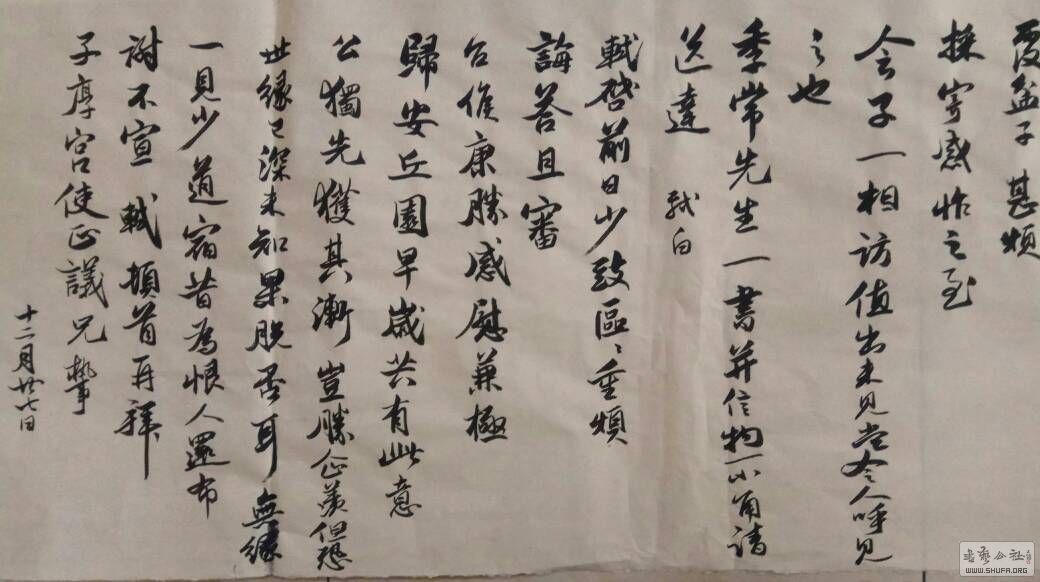 覆盆子甚烦
採寄感怍之至
令子一相访值出未見当令人呼見
之也
季常先生一書并信物一小角請
送達 軾白
軾啓前日少致區〻重煩
誨荅且審
台候康勝感慰兼極
歸安丘園早歲共有此意
公獨先獲其漸豈勝企羡但恐
世緣已深未知果脫否耳無緣
一見少道宿昔為恨人還布
謝不宣軾頓首再拜
子厚宫使正議兄執事
十二月廿七日
書藝公社
WWW.SHUFA.ORG